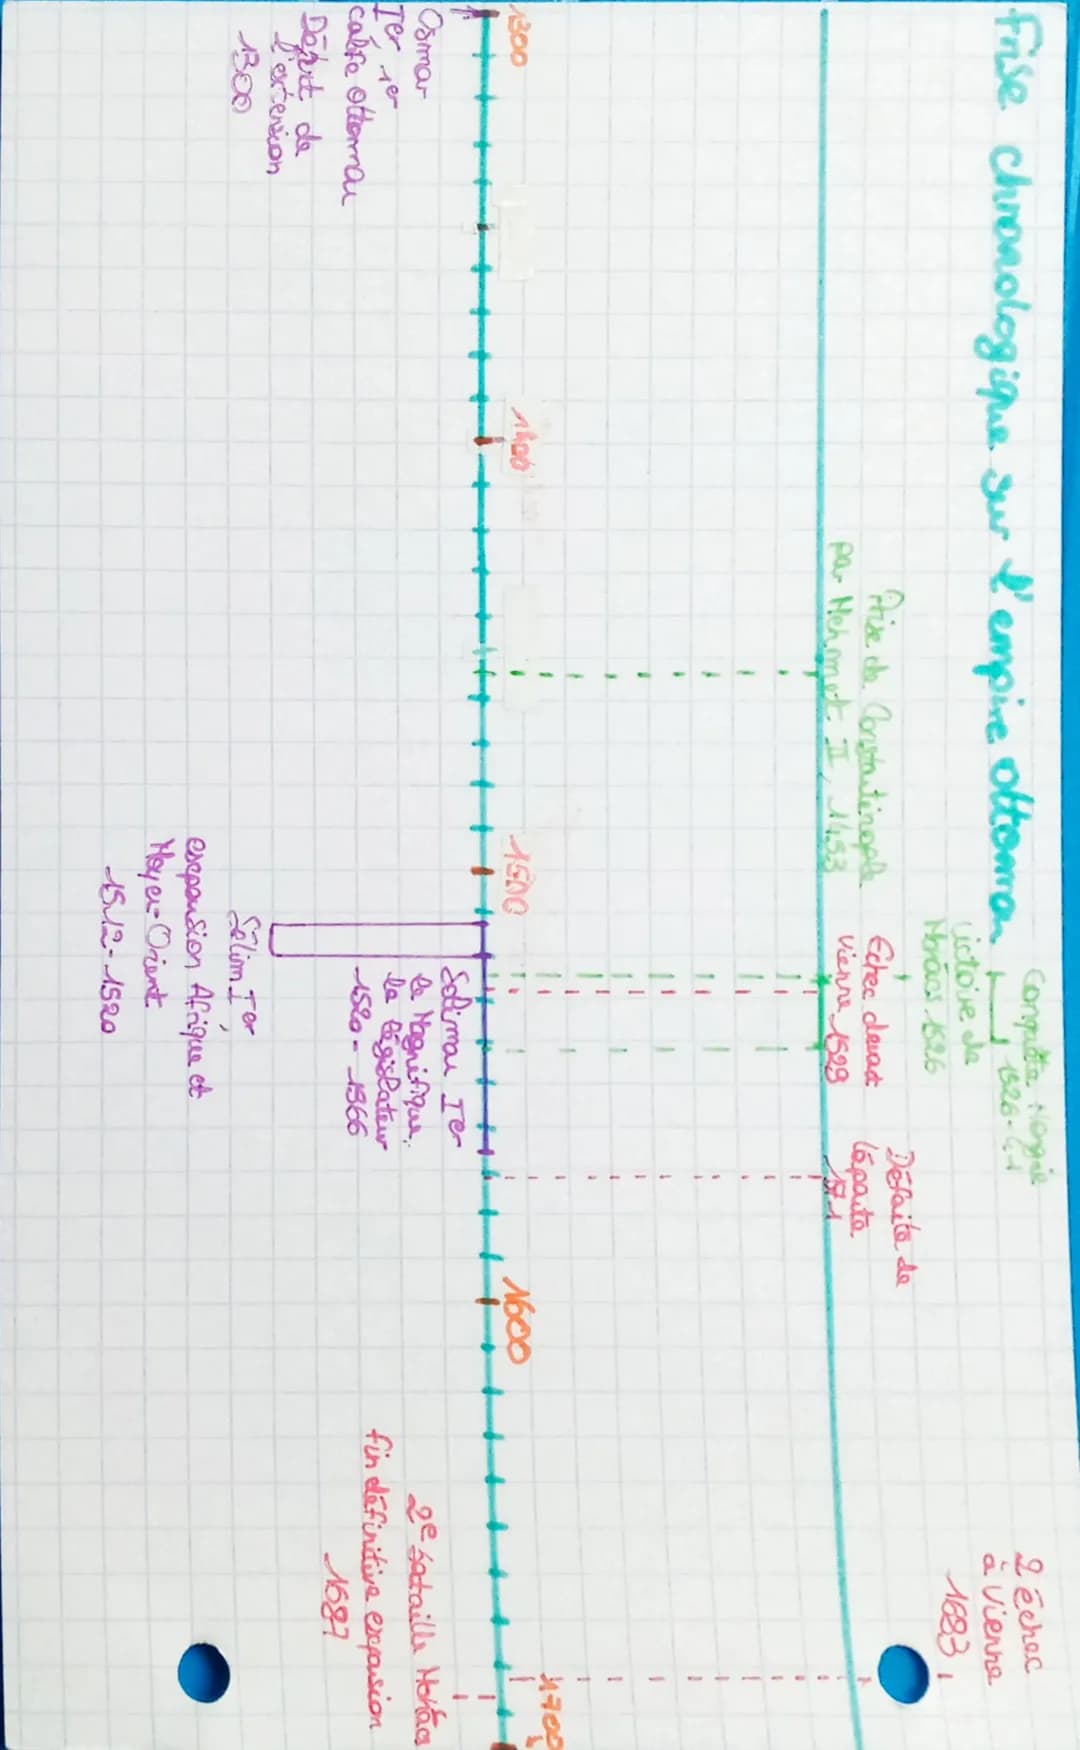 Frise chronologique sur l'empire ottoman
Conquête Hongrie
1526-41
Victoire de
Mohács 1526
2 échec
à Vienne
1683
Prise de Constantinople
par Mehmet II, 1453
Echec devant
Vienne 1529
Défaite de
Lépante
1571
1300
1400
1500
1600
1700
Osman
Ier, 1er
calife ottoman
Départ de
l'extension
1300
Soliman Ier
le Magnifique,
le législateur
1520-1566
Sélim Ier,
expansion Afrique et
Moyen-Orient
1512-1520
2e bataille Mohács
fin définitive expansion
1687